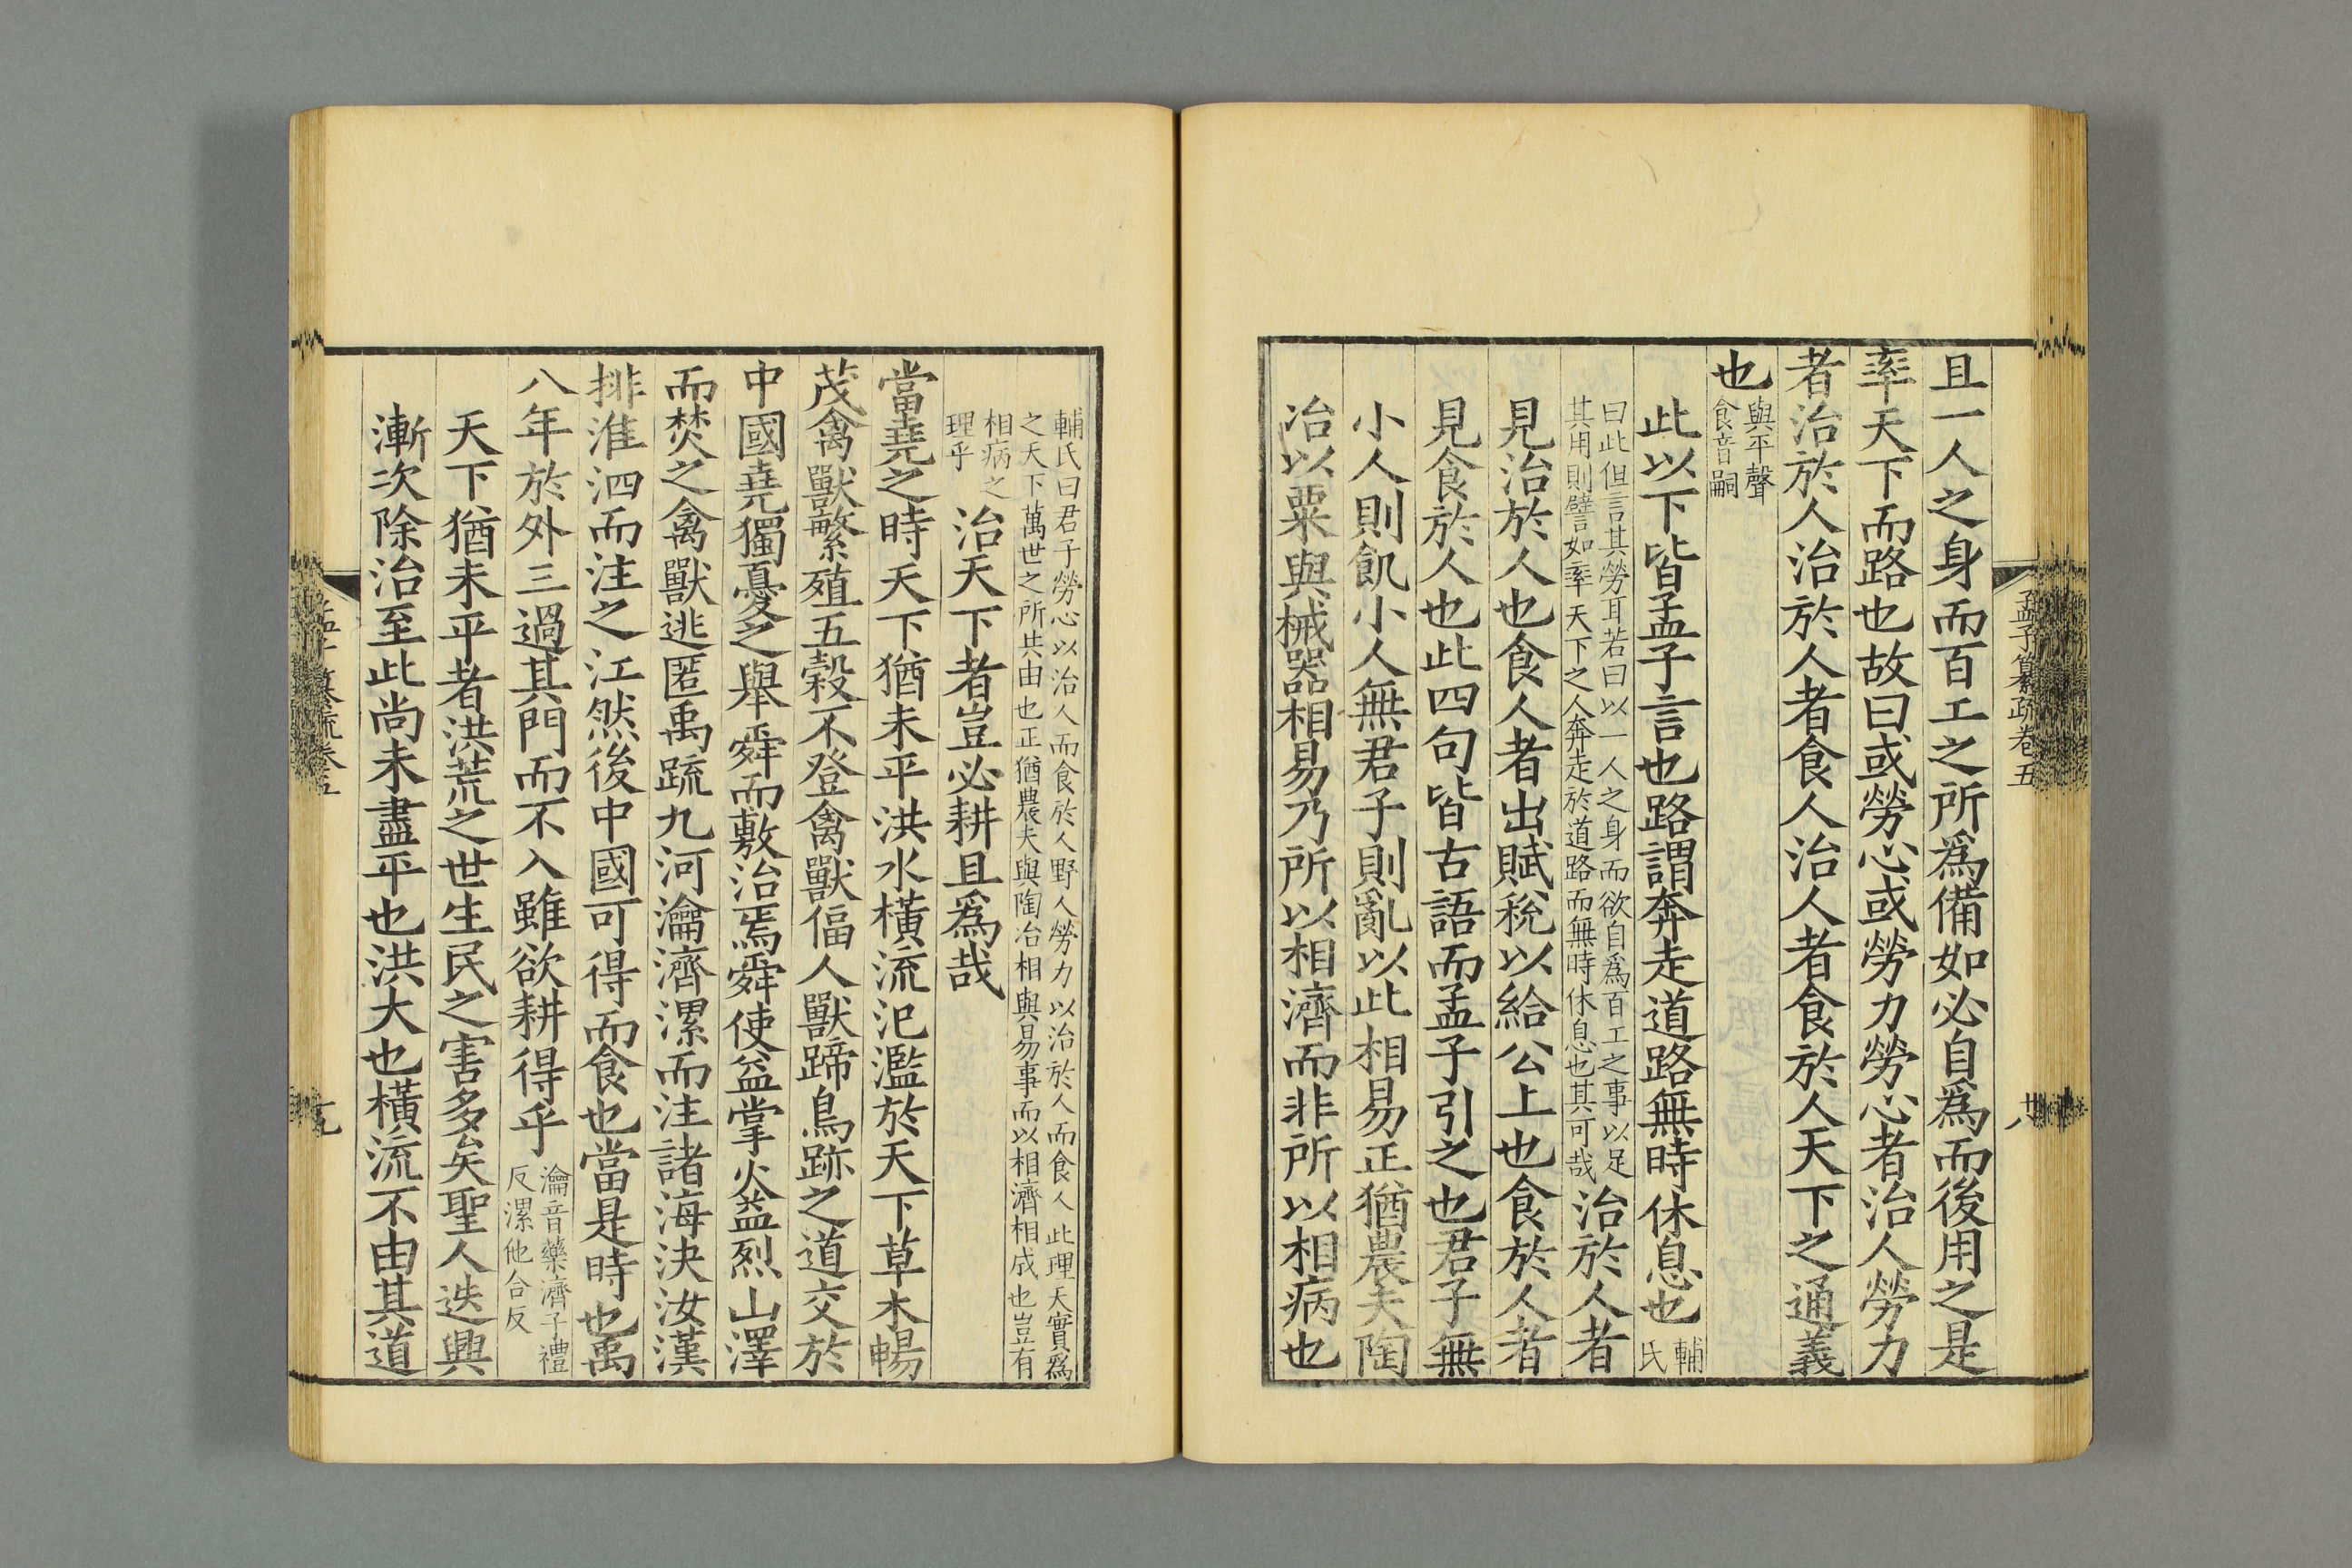 且一人之身而百工之所爲備如必自爲而後用之是
率天下而路也故曰或勞心或勞力勞心者治人勞力
者治於人治於人者食人治人者食於人天下之通義
也
與平聲
食音嗣
此以下皆孟子言也路謂奔走道路無時休息也
輔
氏
曰此但言其勞耳若曰以一人之身而欲自爲百工之事以足
其用則譬如率天下之人奔走於道路而無時休息也其可哉
治於人者
見治於人也食人者出賦稅以給公上也食於人者
見食於人也此四句皆古語而孟子引之也君子無
小人則飢小人無君子則亂以此相易正猶農夫陶
冶以粟與械器相易乃所以相濟而非所以相病也
孟子纂疏卷五
廿八
輔氏曰君子勞心以治人而食於人野人勞力以治於人而食人此理天實爲
之天下萬世之所共由也正猶農夫與陶冶相與易事而以相濟相成也豈有
相病之
理乎
治天下者豈必耕且爲哉
當堯之時天下猶未平洪水橫流氾濫於天下草木暢
茂禽獸繁殖五穀不登禽獸偪人獸蹄鳥跡之道交於
中國堯獨憂之舉舜而敷治焉舜使益掌火益烈山澤
而焚之禽獸逃匿禹疏九河瀹濟漯而注諸海決汝漢
排淮泗而注之江然後中國可得而食也當是時也禹
八年於外三過其門而不入雖欲耕得乎
瀹音藥濟子禮
反漯他合反
天下猶未平者洪荒之世生民之害多矣聖人迭興
漸次除治至此尚未盡平也洪大也橫流不由其道
孟子纂疏卷五